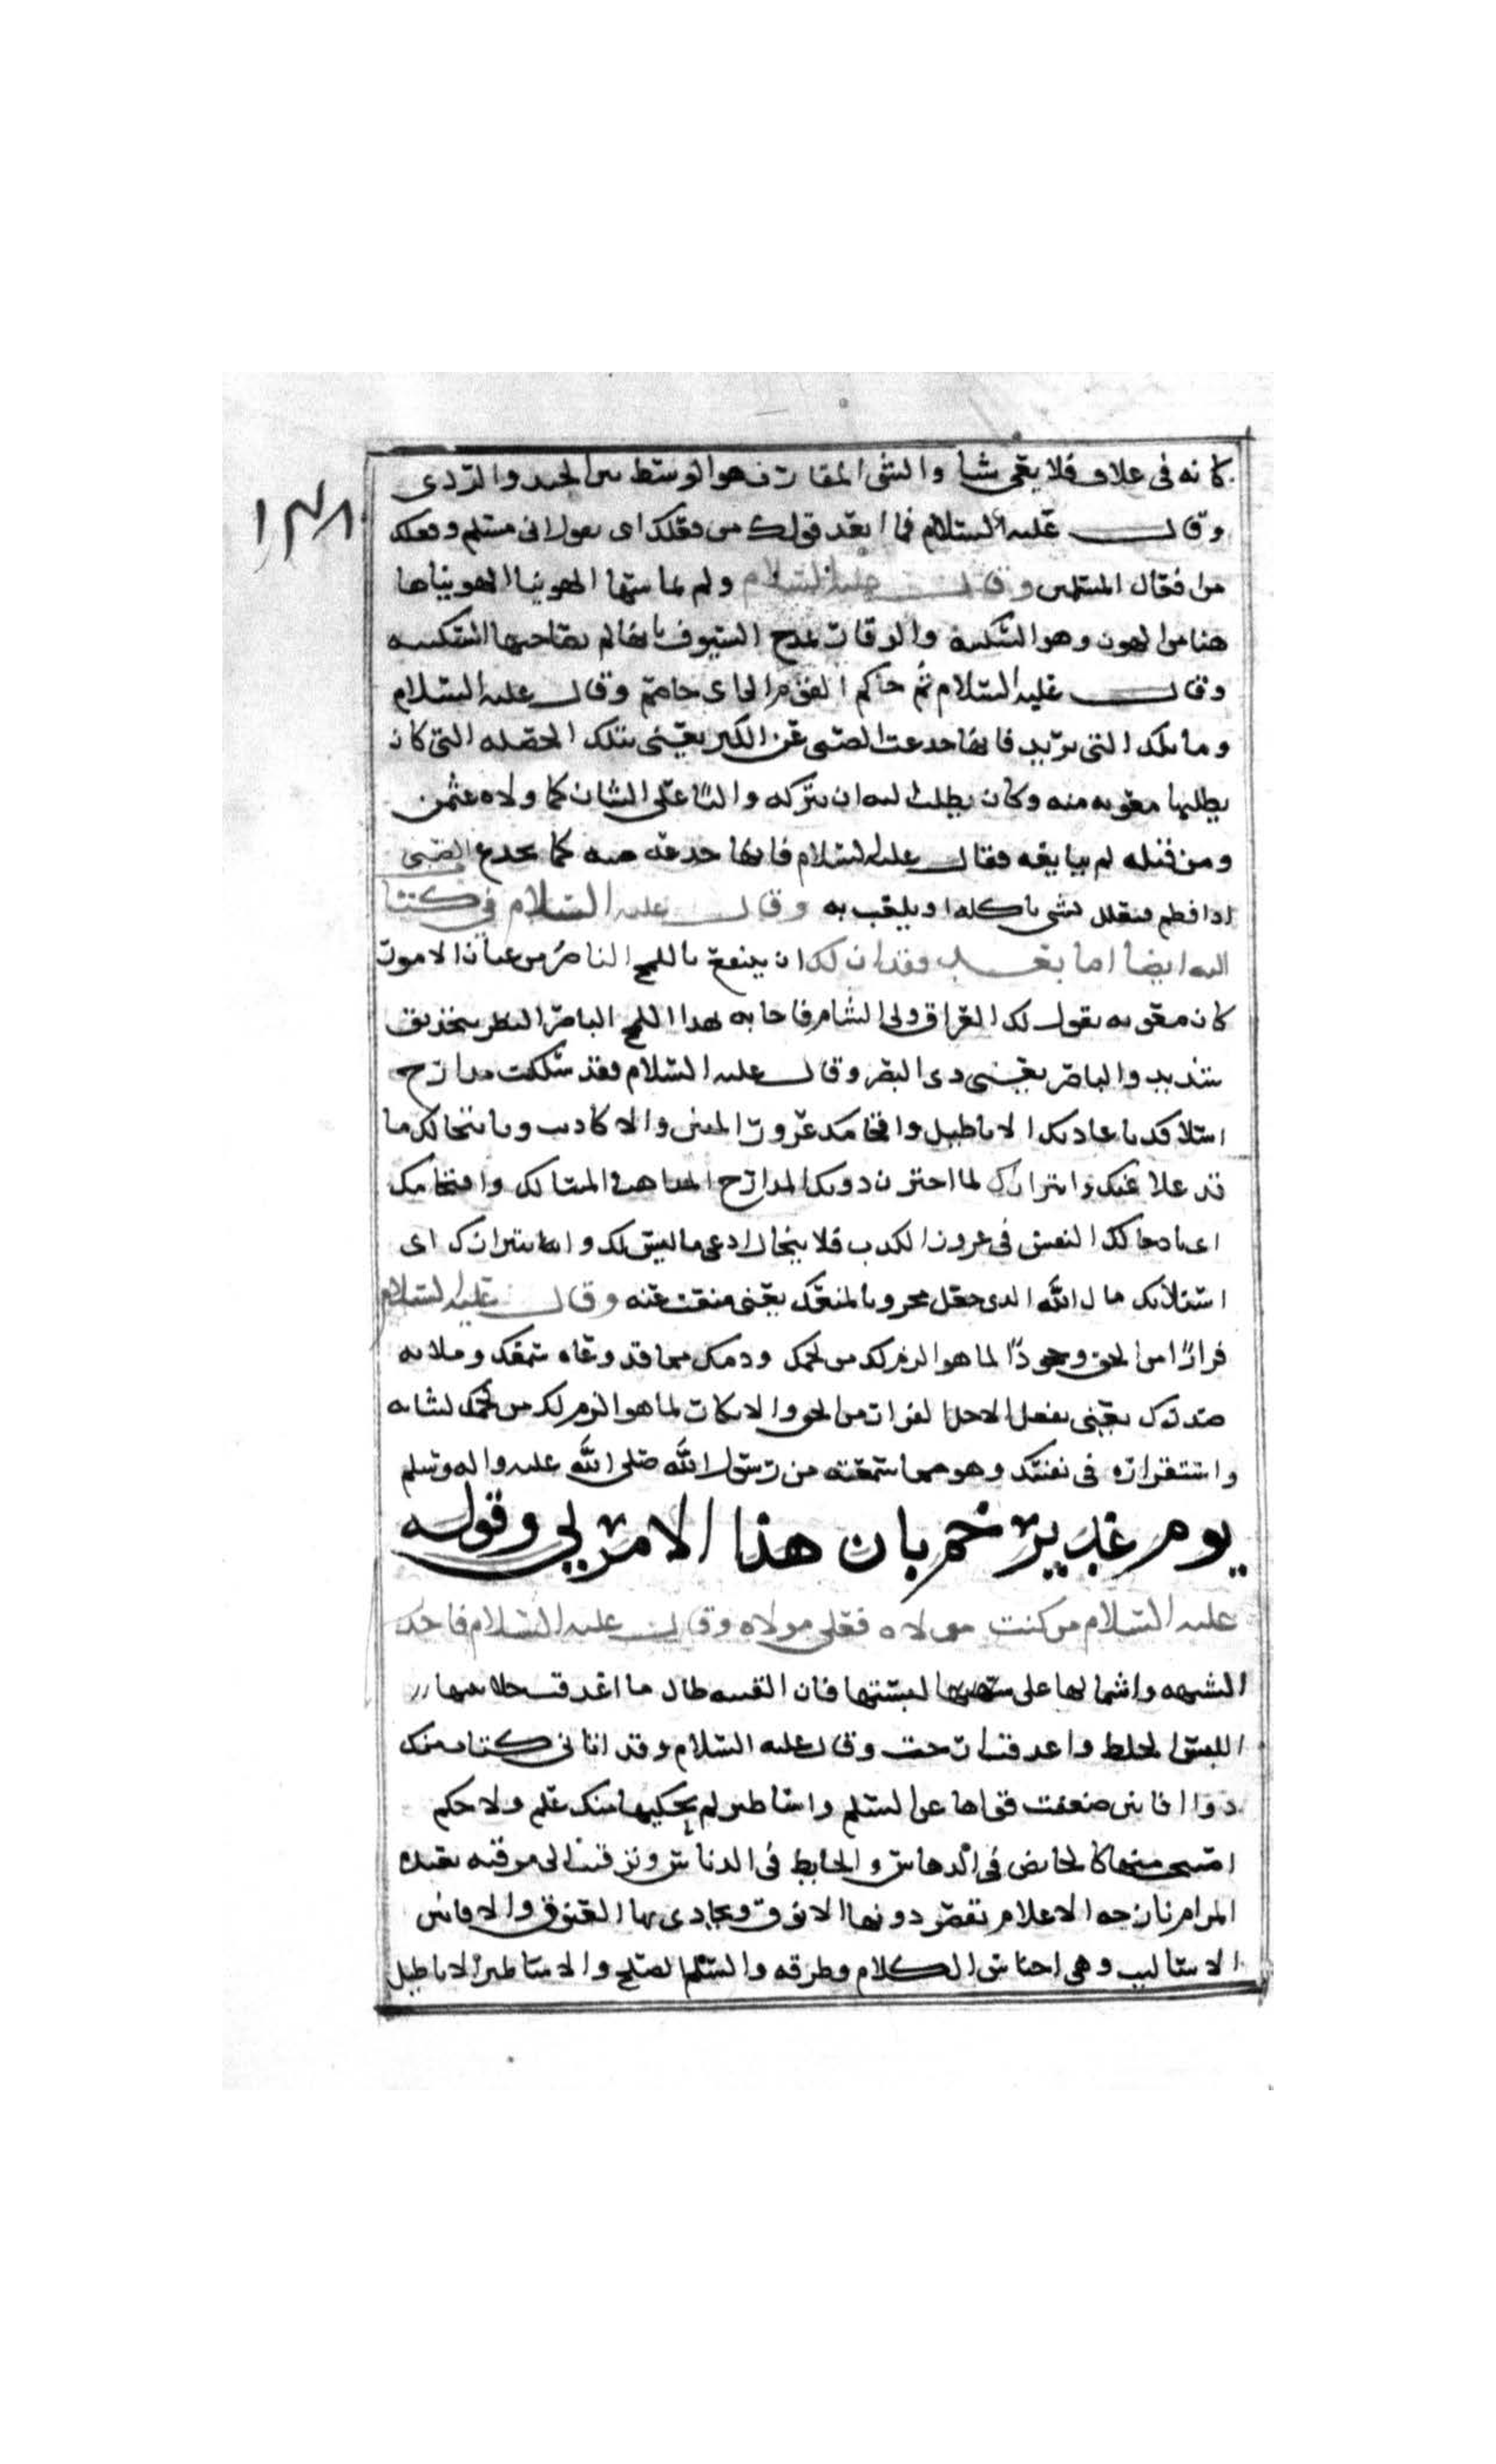 كانه في غلاف فلا يعي شيا والشي المقارب هو الوسط بين الجيد والردي
١٣٨
وقال عليه السلام فما ابعد قولك من فعلك اي يقول اني مسلم وفعلك
من فعال المسلمين وقال عليه السلام ولم يماسها الهوينا الهوينا ها
هنا من الهون وهو السكينه والوقار يمدح السيوف بانها لم يصاحبها السكينه
وقال عليه السلام ثم حاكم القوم الي اي خاصم وقال عليه السلام
وما تلك التي تريد فانها خدعت الصبي عن الكبر يعني بتلك الخصله التي كان
يطلبها معويه منه وكان يطلب اليه ان يتركه واليا علي الشان كما ولاه عثمن
ومن قبله لم يبايعه فقال عليه السلام فانها خدعه منه كما يخدع الصبي
اذا فطم فيعلل بشي ياكله او يلعب به وقال عليه السلام في كتب
اليه ايضا اما بعد فقد ان لك ان ينتفع باللمح الناصر من عيان الامور
كان معويه يقول لك العراق ولي الشام فاجابه بهذا اللمح الباصر النظر بتحذيق
شديد والباصر يعني ذي البصر وقال عليه السلام فقد سلكت مدارج
اسلافك بادعايك الاباطيل واقتحامك غرور المين والاكاذيب وبانتحالك ما
قد علا عنك وابتزازك لما اختزن دونك المدارج المذاهب المسالك واقتحامك
اي ادخالك النفس في غرور الكذب فلا ينحال ادعي ما ليس لك وابتزازك اي
استلابك مال الله الذي جعل مخزونا لمنعك يعني منعت عنه وقال عليه السلام
فرارًا من الحق وجحودًا لما هو الزم لك من لحمك ودمك مما قد وعاه سمعك وملا به
صدرك يعني بفعل لاجل الفرار من الحق والانكار لما هو الزم لك من لحمك لشانه
واستقراره في نفسك وهو مما سمعته من رسول الله صلى الله عليه واله وسلم
يوم غدير خم بان هذا الامر لي وقوله
عليه السلام من كنت مولاه فعلي مولاه وقال عليه السلام فاحذر
الشبهه واشتمالها على لبستها فان الفتنه طال ما اغدقت جلابيبها
اللبس الخلط واغدقت ارخت وقال عليه السلام وقد اتاني كتاب منك
ذو افانين ضعفت قواها عن السلم واساطير لم يحكها منك علم ولا حكم
اصبحت منها كالخايض في الدهاس والخابط في الديماس وترقيت الي مرقبه بعيده
المرام نازحه الاعلام تقصر دونها الانوق ويحاذي بها العيوق والافانين
الاساليب وهي اجناس الكلام وطرقه والسلم الصلح والاساطير الاباطيل